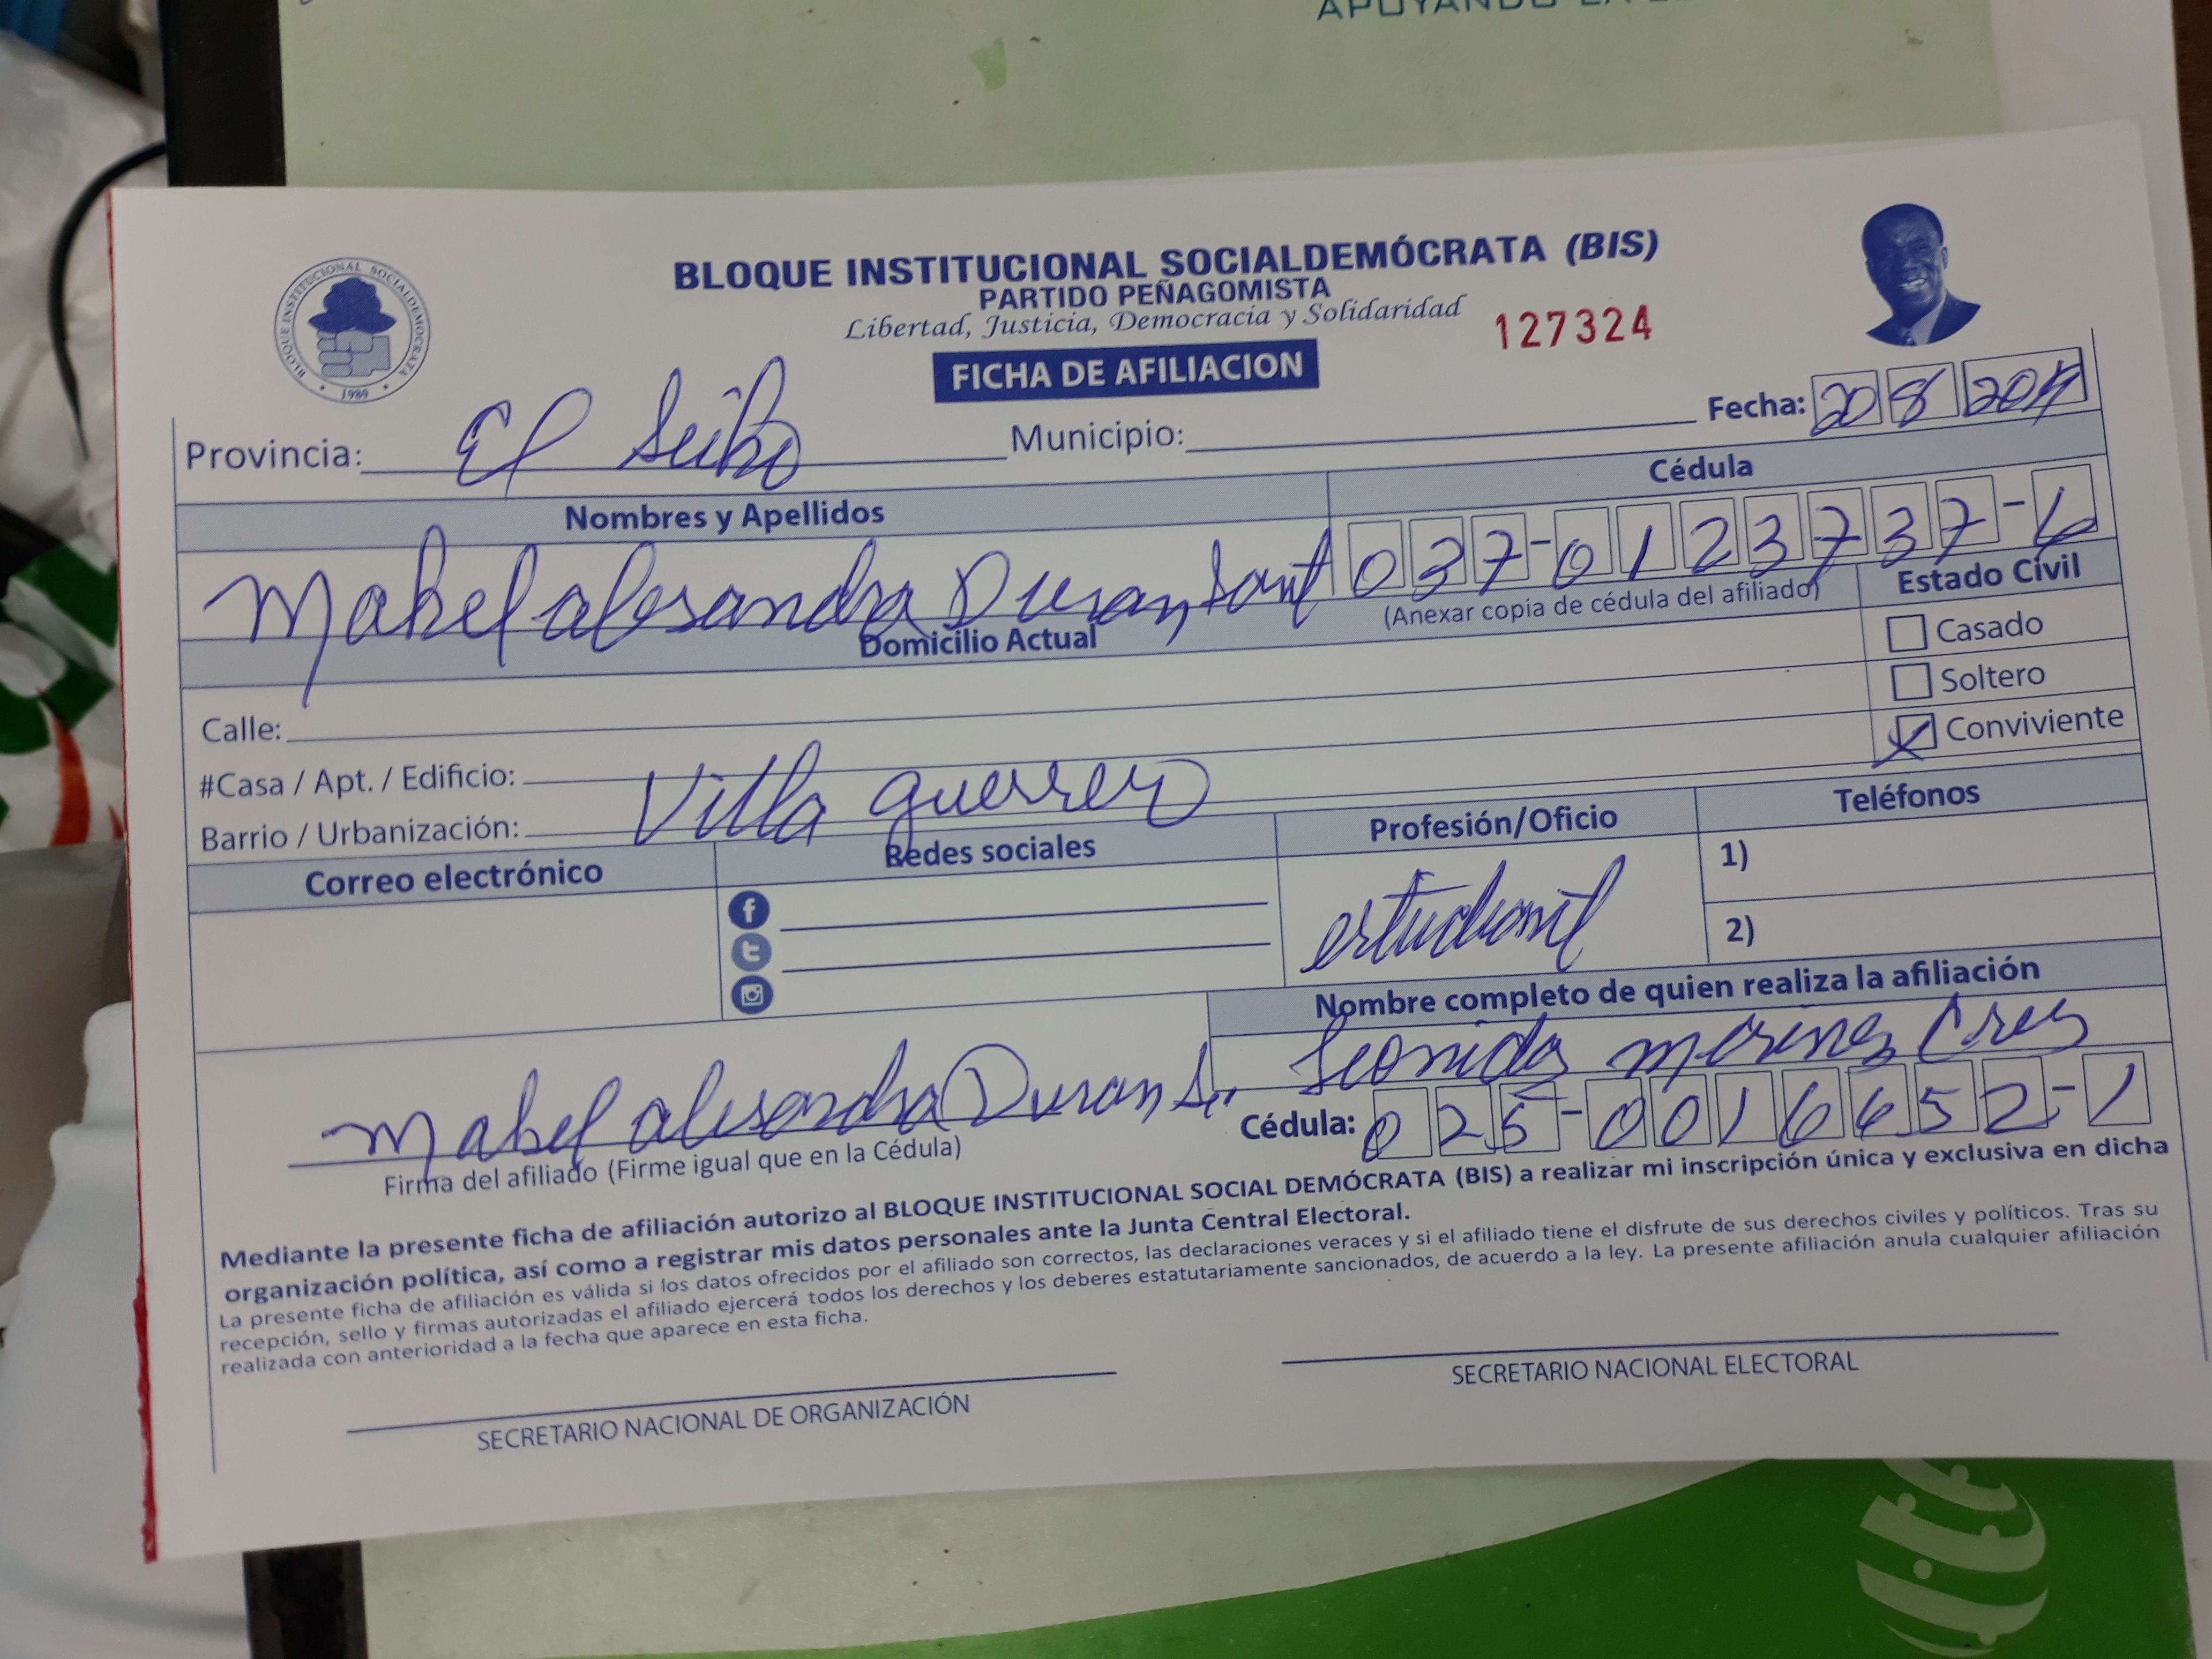 APOYANDO LA
BLOQUE INSTITUCIONAL SOCIALDEMÓCRATA (BIS)
PARTIDO PEÑAGOMISTA
Libertad, Justicia, Democracia y Solidaridad
127324
BLOQUE INSTITUCIONAL SOCIALDEMOCRATA
1989
FICHA DE AFILIACION
Fecha: 20 8
Provincia: El Seibo Municipio:
Nombres y Apellidos Cédula
Mabel alesandra Duran Sant 037-0123737-6
(Anexar copia de cédula del afiliado)
Domicilio Actual Estado Civil
Casado
Soltero
Conviviente
Calle:
#Casa / Apt. / Edificio:
Barrio / Urbanización: Villa guerrero
Correo electrónico Redes sociales Profesión/Oficio Teléfonos
1)
estudiant
2)
Nombre completo de quien realiza la afiliación
Leonidas
Mabel alesandra Duran S.
Cédula: 025-0016652-1
Firma del afiliado (Firme igual que en la Cédula)
Mediante la presente ficha de afiliación autorizo al BLOQUE INSTITUCIONAL SOCIAL DEMÓCRATA (BIS) a realizar mi inscripción única y exclusiva en dicha
organización política, así como a registrar mis datos personales ante la Junta Central Electoral.
La presente ficha de afiliación es válida si los datos ofrecidos por el afiliado son correctos, las declaraciones veraces y si el afiliado tiene el disfrute de sus derechos civiles y políticos. Tras su
recepción, sello y firmas autorizadas el afiliado ejercerá todos los derechos y los deberes estatutariamente sancionados, de acuerdo a la ley. La presente afiliación anula cualquier afiliación
realizada con anterioridad a la fecha que aparece en esta ficha.
SECRETARIO NACIONAL DE ORGANIZACIÓN
SECRETARIO NACIONAL ELECTORAL